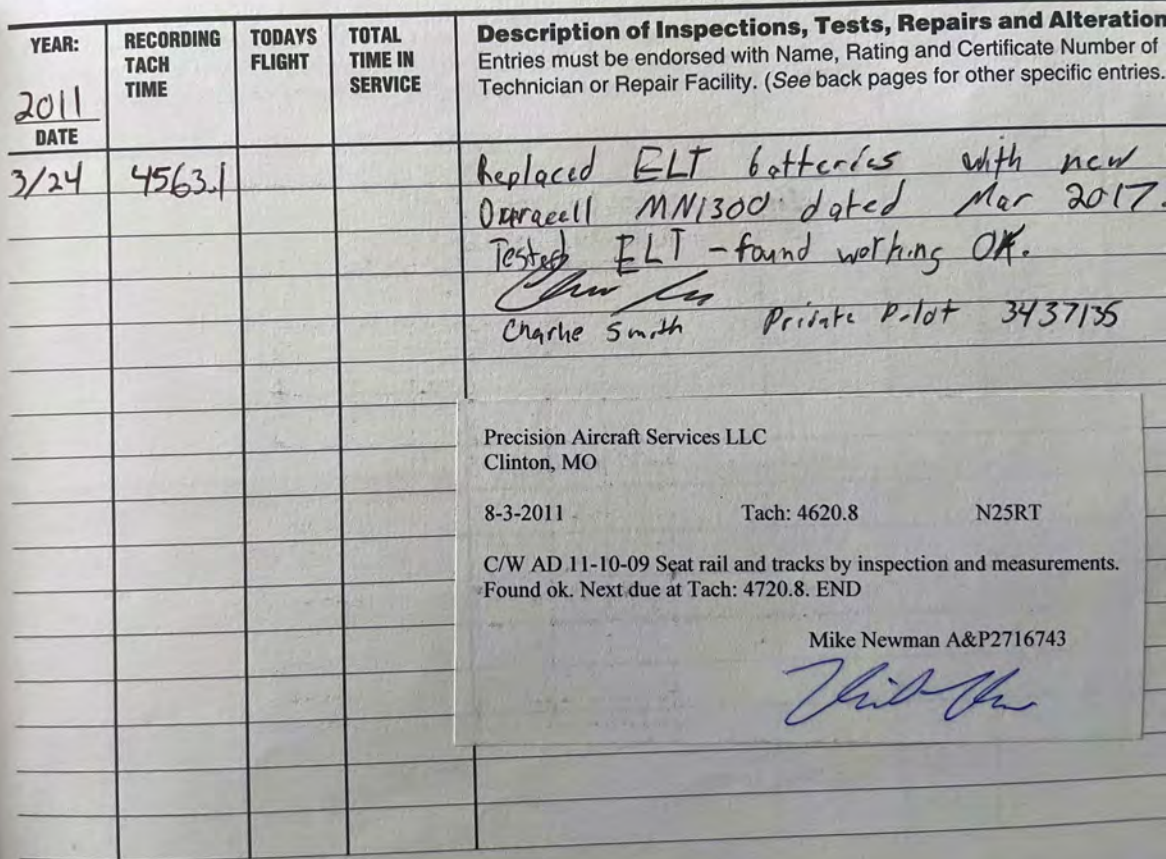 YEAR:
2011
DATE
RECORDING
TACH
TIME
TODAYS
FLIGHT
TOTAL
TIME IN
SERVICE
Description of Inspections, Tests, Repairs and Alteration
Entries must be endorsed with Name, Rating and Certificate Number of
Technician or Repair Facility. (See back pages for other specific entries.
3/24 4563.1 Replaced ELT batteries with new
Duracell MN1300 dated Mar 2017.
Tested ELT - found working OK.
Charlie Smith Private Pilot 3437135
Precision Aircraft Services LLC
Clinton, MO
8-3-2011 Tach: 4620.8 N25RT
C/W AD 11-10-09 Seat rail and tracks by inspection and measurements.
Found ok. Next due at Tach: 4720.8. END
Mike Newman A&P2716743